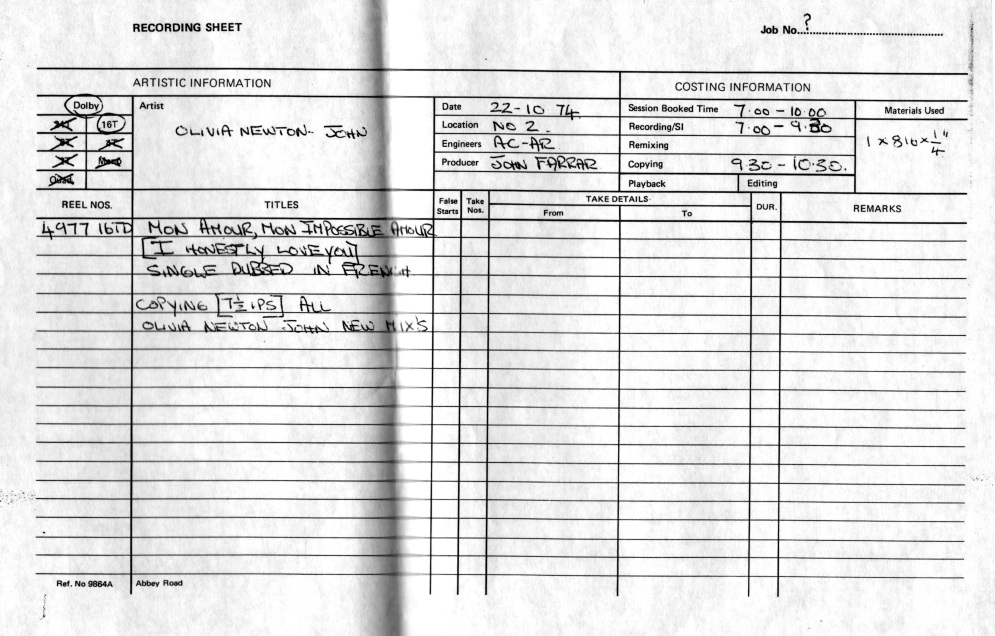 RECORDING SHEET
Job No...?
ARTISTIC INFORMATION
COSTING INFORMATION
Dolby
16T
Artist
OLIVIA NEWTON- JOHN
Date 22-10 74
Location No 2.
Engineers AC-AR
Producer JOHN FARRAR
Session Booked Time 7.00 - 10.00
Recording/SI 7.00 - 9.30
Remixing
Copying 9.30 - 10.30.
Playback
Editing
Materials Used
1 x 816 x 1/4"
REEL NOS.
TITLES
False Starts
Take Nos.
TAKE DETAILS
From
To
DUR.
REMARKS
4977 16TD MON AMOUR, MON IMPOSSIBLE AMOUR
[I HONESTLY LOVE YOU]
SINGLE DUBBED IN FRENCH
COPYING [7½ IPS] ALL
OLIVIA NEWTON JOHN NEW MIX'S
Ref. No 9864A
Abbey Road